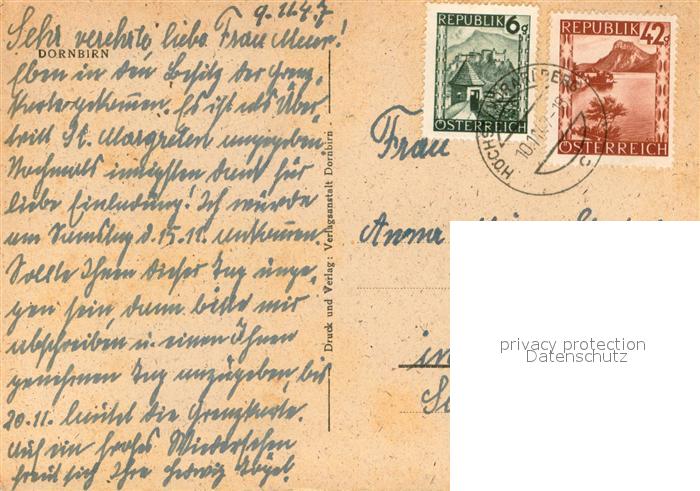 9.11.47
Sehr verehrte, liebe Frau Meier!
DORNBIRN
Eben in den Besitz der Grenz-
karte gekommen. Es ist als Über-
tritt St. Margreten angegeben.
Nochmals innigsten Dank für
liebe Einladung! Ich würde
am Samstag d. 15.11. ankommen.
Sollte Ihnen dieser Tag unge-
gen sein, dann bitte mir
abschreiben u. einen Ihnen
genehmen Tag anzugeben, bis
20.11. lautet die Grenzkarte.
Auf ein frohes Wiedersehen
freut sich Ihre Hedwig
Druck und Verlag: Verlagsanstalt Dornbirn.
REPUBLIK 6g
ÖSTERREICH
REPUBLIK 42g
ÖSTERREICH
HÖCHST VORARLBERG
Frau
Anna
in
privacy protection
Datenschutz